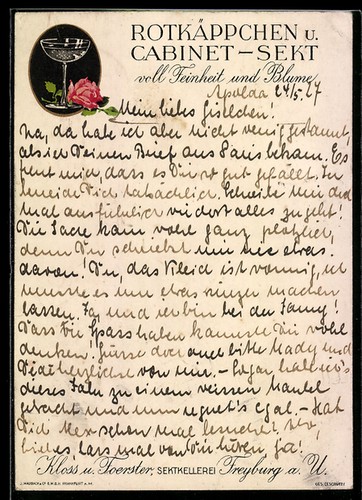 ROTKÄPPCHEN u.
CABINET-SEKT
voll Feinheit und Blume
Apolda 24/5. 27
Mein liebes Giselchen!
Na, da habe ich aber nicht wenig gestaunt,
als ich Deinen Brief aus Paris bekam. Es
freut mich, dass es Dir so gut gefällt. Ich
beneide Dich tatsächlich. Schreibe mir doch
mal ausführlich wie dort alles zugeht!
Die Sache kam wohl ganz plötzlich,
denn Du schriebst mir nie etwas
davon! Du, das Kleid ist wonnig, ich
musste es nur etwas enger machen
lassen. Ja, und ich bin bei der Fanny!
Dass wir Spass haben kannst Du Dir wohl
denken. Grüsse doch auch bitte Mady und
herzlichst von mir. –
dieses Jahr zu einem weissen Mantel
gebracht und nun regnet's egal. – Hat
Dich schon mal besucht?
liebes, lass mal von Dir hören, ja!
Kloss u. Foerster, SEKTKELLEREI Freyburg a. U.
GES. GESCHÜTZT